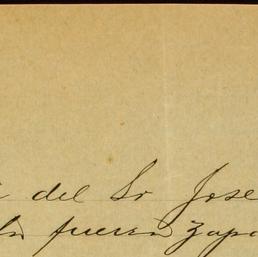 del Sr Jose
fuerza Zapa